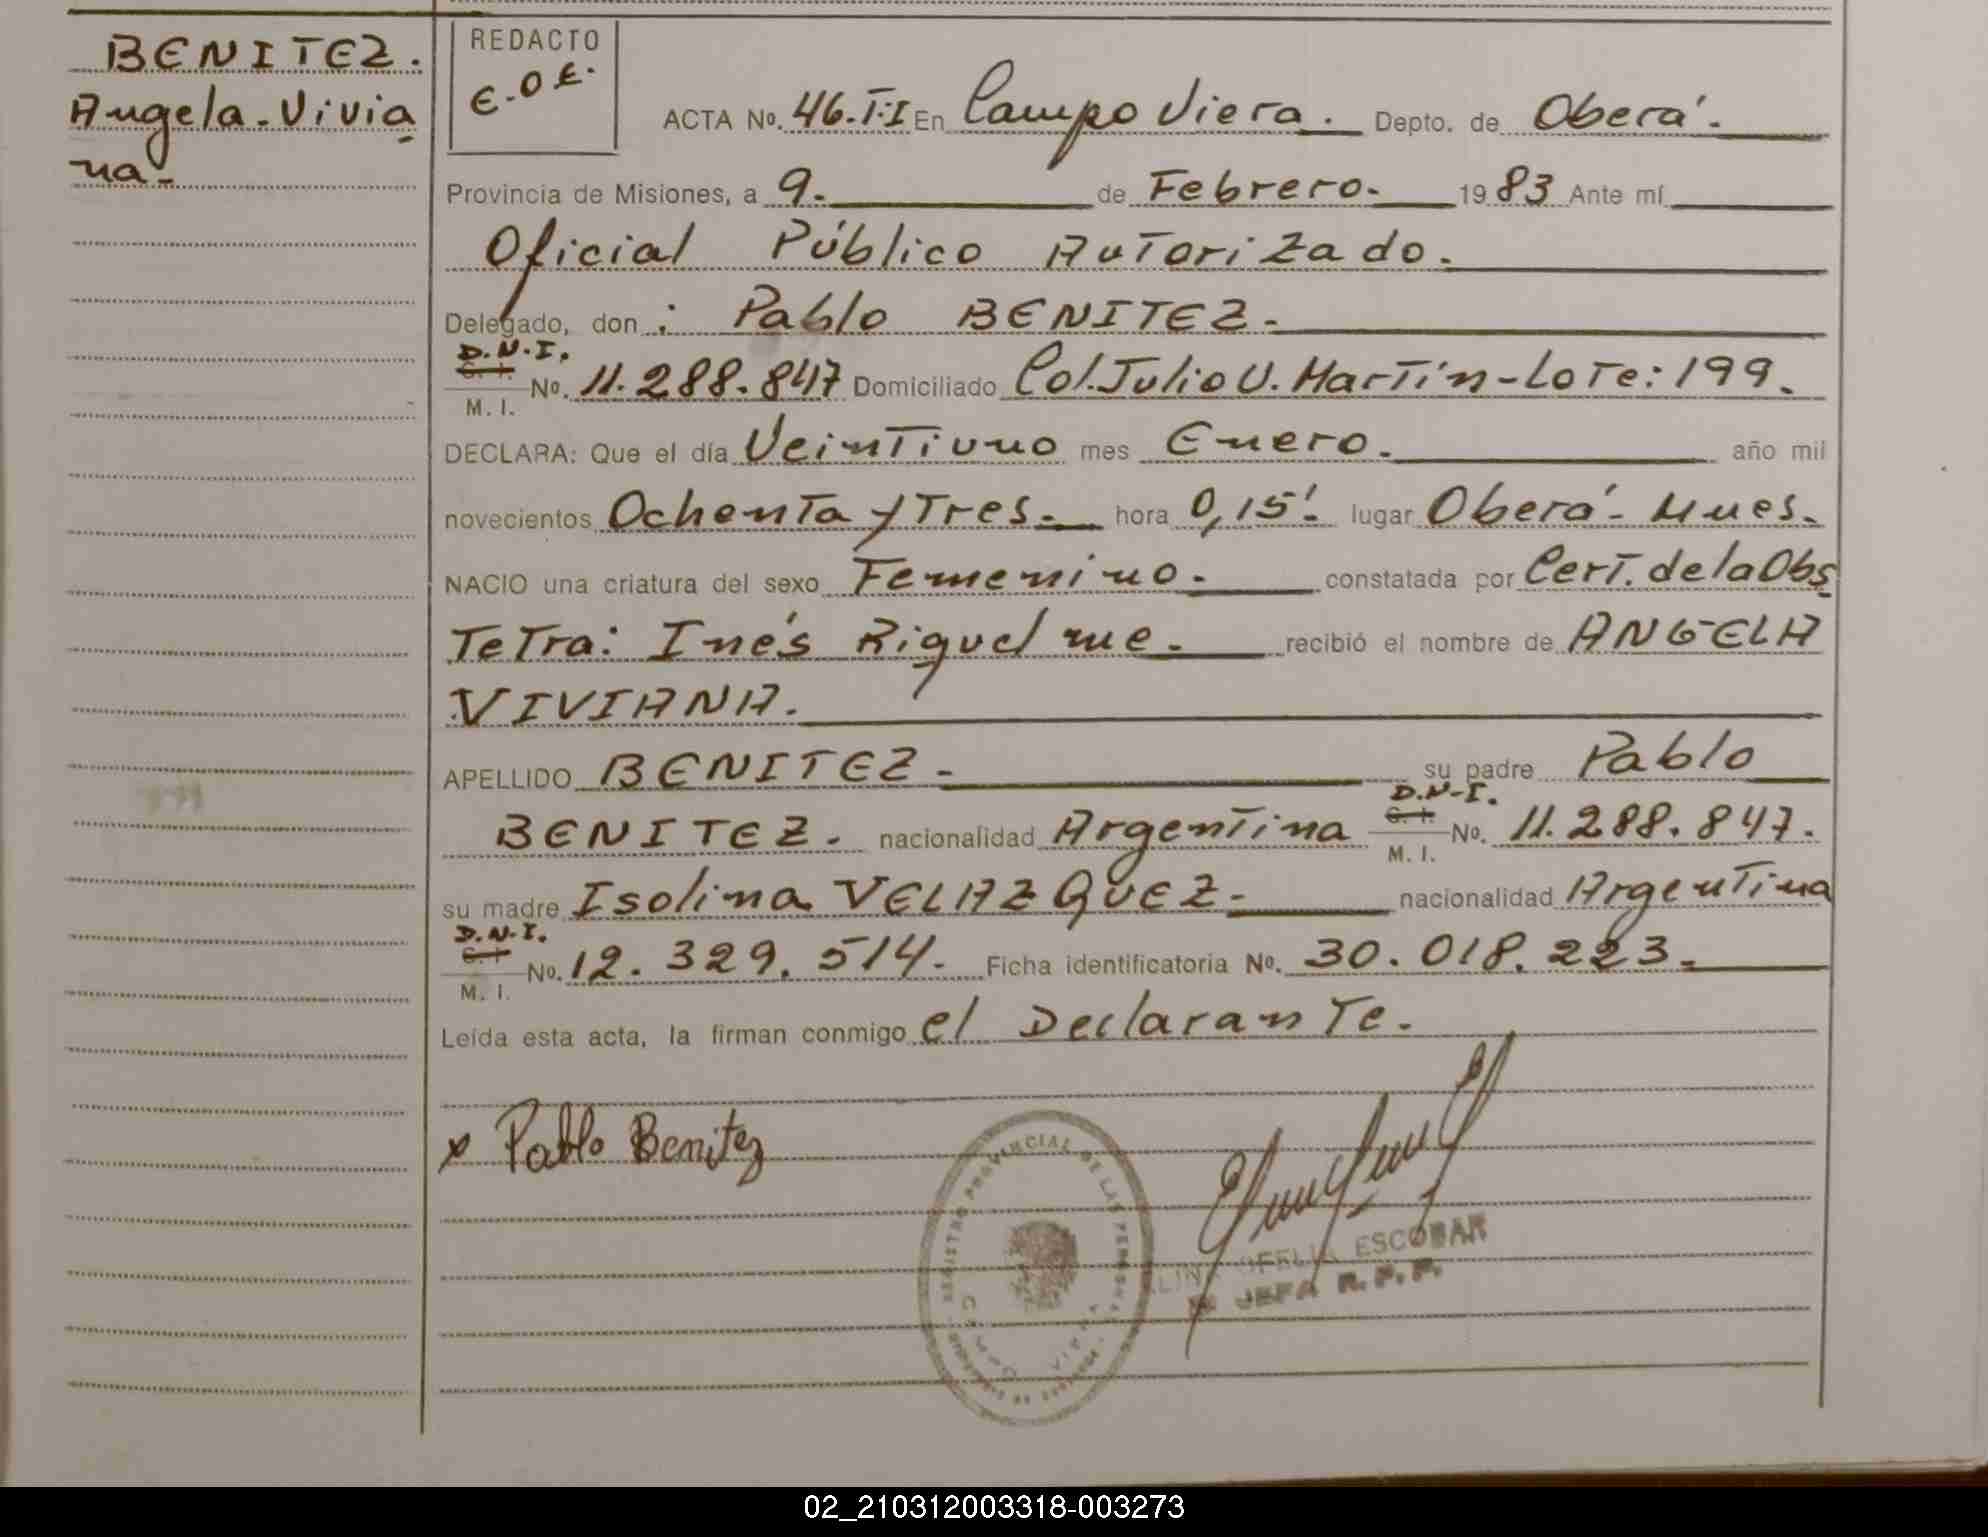 BENITEZ.
Angela-Vivia
na-
REDACTO
E.O.E.
ACTA No. 46.T:I En Campo Viera. Depto. de Oberá.
Provincia de Misiones, a 9. de Febrero. 1983 Ante mí
Oficial Público Autorizado.
Delegado, don : Pablo BENITEZ.
D.N.I.
C. I.
No. 11.288.847 Domiciliado Col. Julio U. Martín-Lote: 199.
M. I.
DECLARA: Que el día Veintiuno mes Enero. año mil
novecientos Ochenta y Tres. hora 0,15'. lugar Oberá- Mnes.
NACIO una criatura del sexo Femenino. constatada por Cert. de la Obs
Tetra: Inés Riquelme. recibió el nombre de ANGELA
VIVIANA.
APELLIDO BENITEZ. su padre Pablo
D.N.I.
C. I.
BENITEZ. nacionalidad Argentina No. 11.288.847.
M. I.
su madre Isolina VELAZQUEZ. nacionalidad Argentina
D.N.I.
C. I.
No. 12.329.514. Ficha identificatoria No. 30.018.223.
M. I.
Leída esta acta, la firman conmigo el Declarante.
x Pablo Benitez
REGISTRO PROVINCIAL DE LAS PERSONAS
CAMPO VIERA
OFELIA ESCOBAR
JEFA R.P.P.
02_210312003318-003273